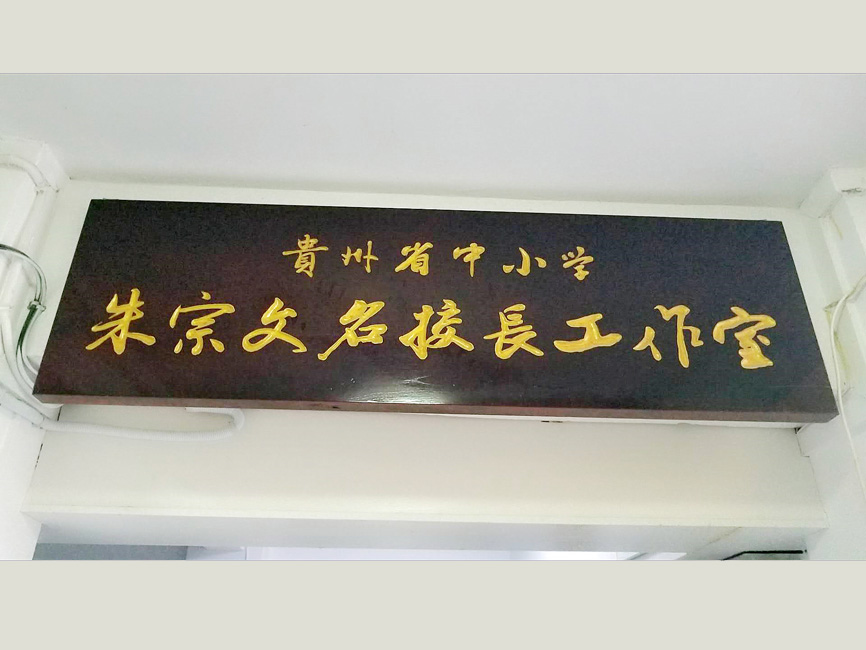 貴州省中小学
朱宗文名校長工作室